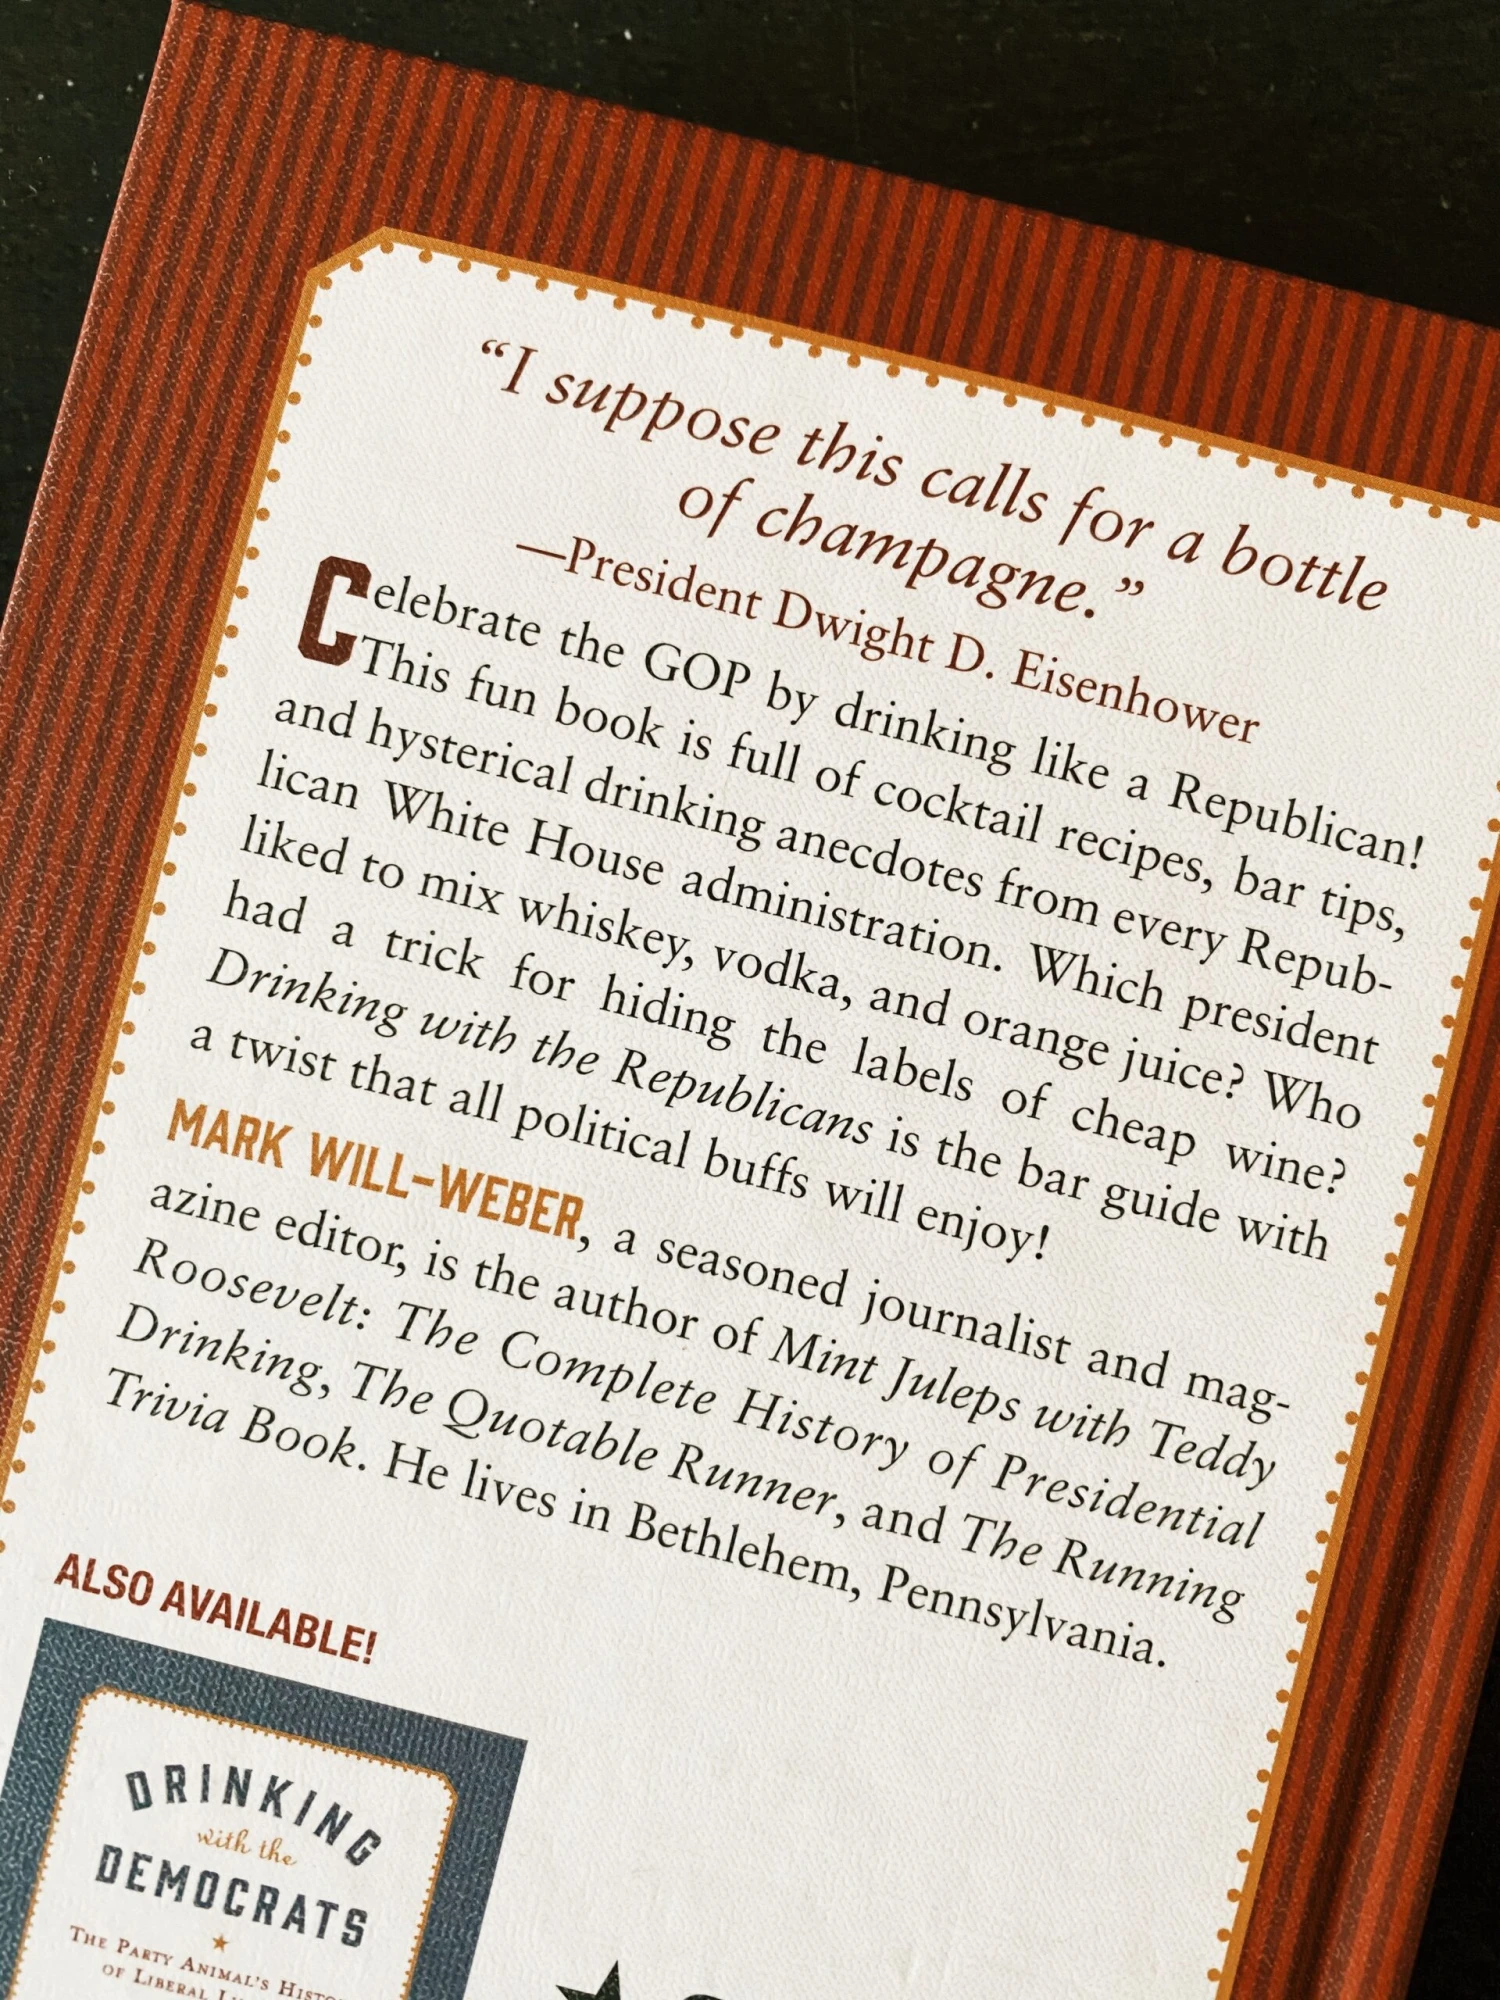 “I suppose this calls for a bottle
of champagne.”
—President Dwight D. Eisenhower
Celebrate the GOP by drinking like a Republican!
This fun book is full of cocktail recipes, bar tips,
and hysterical drinking anecdotes from every Repub-
lican White House administration. Which president
liked to mix whiskey, vodka, and orange juice? Who
had a trick for hiding the labels of cheap wine?
Drinking with the Republicans is the bar guide with
a twist that all political buffs will enjoy!
MARK WILL-WEBER, a seasoned journalist and mag-
azine editor, is the author of Mint Juleps with Teddy
Roosevelt: The Complete History of Presidential
Drinking, The Quotable Runner, and The Running
Trivia Book. He lives in Bethlehem, Pennsylvania.
ALSO AVAILABLE!
DRINKING
with the
DEMOCRATS
THE PARTY ANIMAL’S
OF LIBERAL